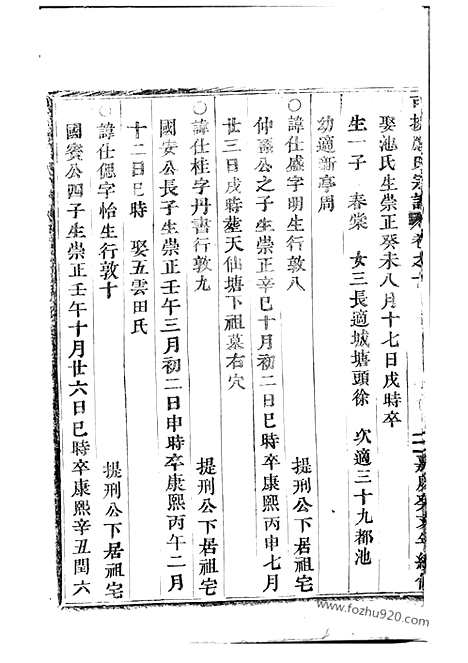 氏宗譜 卷之十
嘉慶癸亥年續修
娶池氏生崇正癸未八月十七日戌時卒
生一子 春棠 女三長適城塘頭徐 次適三十九都池
幼適新亭周
○諱仕盛字明生行敦八 提刑公下居祖宅
仲公之子生崇正辛巳十月初二日巳時卒康熙丙申七月
廿三日戌時塟天仙塘下祖墓右穴
○諱仕桂字丹書行敦九 提刑公下居祖宅
國安公長子生崇正壬午三月初二日申時卒康熙丙午二月
十二日巳時 娶五雲田氏
○諱仕偲字怡生行敦十 提刑公下居祖宅
國賓公四子生崇正壬午十月廿六日巳時卒康熙辛丑閏六
www.fozhu920.com